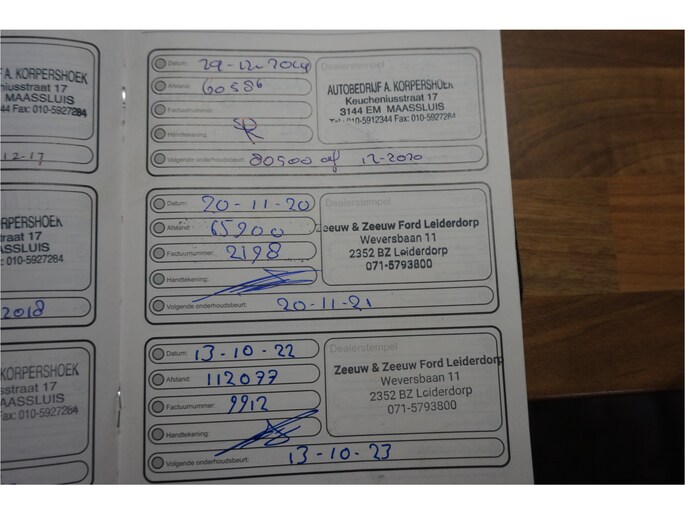 F A. KORPERSHOEK
niusstraat 17
MAASSLUIS
44 Fax: 010-5927284
12-17
RPERSHOEK
traat 17
ASSLUIS
: 010-5927284
2018
KORPERSHOEK
sstraat 17
AASSLUIS
Fax: 010-5927284
Datum: 29-12-2019
Afstand: 60586
Factuurnummer:
Handtekening:
Volgende onderhoudsbeurt: 80500 of 12-2020
Dealerstempel
AUTOBEDRIJF A. KORPERSHOEK
Keucheniusstraat 17
3144 EM MAASSLUIS
Tel: 010-5912344 Fax: 010-5927284
Datum: 20-11-20
Afstand: 65900
Factuurnummer: 2198
Handtekening:
Volgende onderhoudsbeurt: 20-11-21
Dealerstempel
Zeeuw & Zeeuw Ford Leiderdorp
Weversbaan 11
2352 BZ Leiderdorp
071-5793800
Datum: 13-10-22
Afstand: 112077
Factuurnummer: 9912
Handtekening:
Volgende onderhoudsbeurt: 13-10-23
Dealerstempel
Zeeuw & Zeeuw Ford Leiderdorp
Weversbaan 11
2352 BZ Leiderdorp
071-5793800